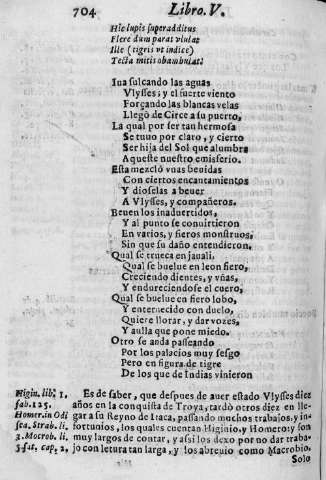 704 Libro. V.
Hic lupis superadditus
Flere dum parat viulat
Ille (tigris vt indice)
Tecta mitis obambulat.
Iua sulcando las aguas
Vlysses, y el fuerte viento
Forçando las blancas velas
Llegò de Circe a su puerto,
La qual por ser tan hermosa
Se tuuo por claro, y cierto
Ser hija del Sol que alumbra
Aqueste nuestro emisferio.
Esta mezclò vnas beuidas
Con ciertos encantamientos
Y dioselas a beuer
A Vlysses, y compañeros.
Beuen los inaduertidos,
Y al punto se conuirtieron
En varios, y fieros monstruos,
Sin que su daño entendieron.
Qual se trueca en jauali,
Qual se buelue en leon fiero,
Creciendo dientes, y vñas,
Y endureciendose el cuero,
Qual se buelue en fiero lobo,
Y enternecido con duelo,
Quiere llorar, y dar vozes,
Y aulla que pone miedo.
Otro se anda passeando
Por los palacios muy sesgo
Pero en figura de tigre
De los que de Indias vinieron
Higin. lib. 1.
fab. 125.
Homer. in Odi
sea. Strab. li.
3. Mocrob. li.
5. sat. cap. 2,
Es de saber, que despues de auer estado Vlysses diez
años en la conquista de Troya, tardò otros diez en lle-
gar a su Reyno de Itaca, passando muchos trabajos, in-
fortunios, los quales cuentan Higinio, y Homero: y son
muy largos de contar, y assi los dexo por no dar traba-
jo con letura tan larga, y los abreuio como Macrobio.
Solo